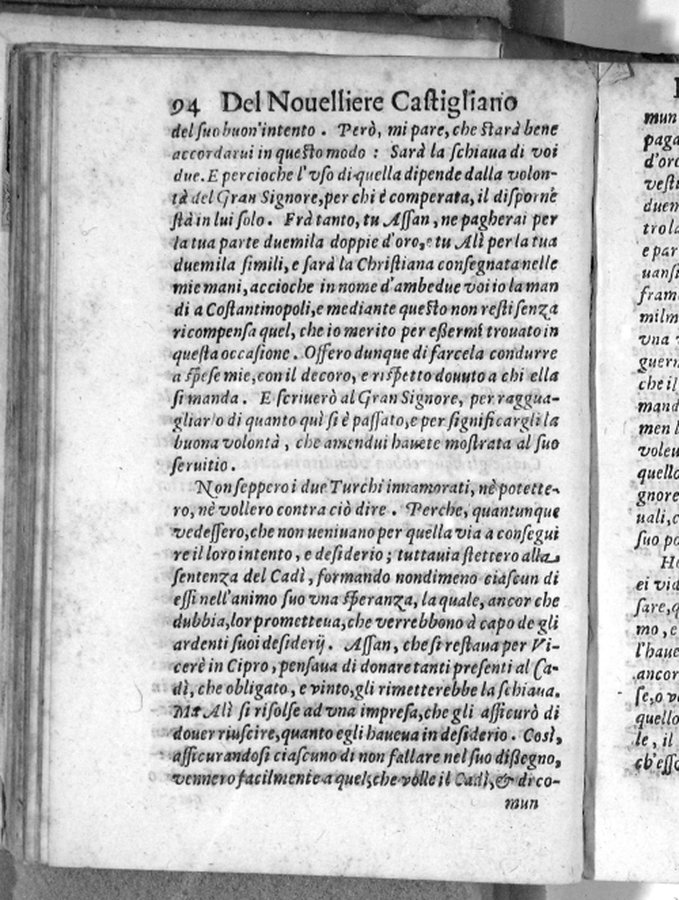 94 Del Nouelliere Castigliano
del suo buon'intento. Però, mi pare, che starà bene
accordarui in questo modo: Sarà la schiaua di voi
due. E percioche l'vso di quella dipende dalla volon-
tà del Gran Signore, per chi è comperata, il disporne
stà in lui solo. Frà tanto, tu Assan, ne pagherai per
la tua parte duemila doppie d'oro, e tu Alì per la tua
duemila simili, e sarà la Christiana consegnata nelle
mie mani, accioche in nome d'ambedue voi io la man
di a Costantinopoli, e mediante questo non resti senza
ricompensa quel, che io merito per eßermi trouato in
questa occasione. Offero dunque di farcela condurre
a spese mie, con il decoro, e rispetto douuto a chi ella
si manda. E scriuerò al Gran Signore, per raggua-
gliarlo di quanto quì si è passato, e per significargli la
buona volontà, che amendui hauete mostrata al suo
seruitio.
Non seppero i due Turchi innamorati, nè potette-
ro, nè vollero contra ciò dire. Perche, quantunque
vedessero, che non ueniuano per quella via a consegui
re il loro intento, e desiderio; tuttauia stettero alla
sentenza del Cadì, formando nondimeno ciascun di
essi nell'animo suo vna speranza, la quale, ancor che
dubbia, lor prometteua, che verrebbono à capo de gli
ardenti suoi desiderij. Assan, che si restaua per Vi-
cerè in Cipro, pensaua di donare tanti presenti al Ca-
dì, che obligato, e vinto, gli rimetterebbe la schiaua.
Ma Alì si risolse ad vna impresa, che gli assicurò di
douer riuscire, quanto egli haueua in desiderio. Così,
assicurandosi ciascuno di non fallare nel suo dißegno,
vennero facilmente a quel, che volle il Cadì, & di co-
mun
mun
paga
d'oro
vesti
duem
tro la
e par
uansi
fram
milm
vna
guern
che il
mand
men l
voleu
quello
gnore
uali, c
suo po
He
ei via
sare, q
mo, e
l'haue
ancor
se, o v
quello
le, il
ch'esso